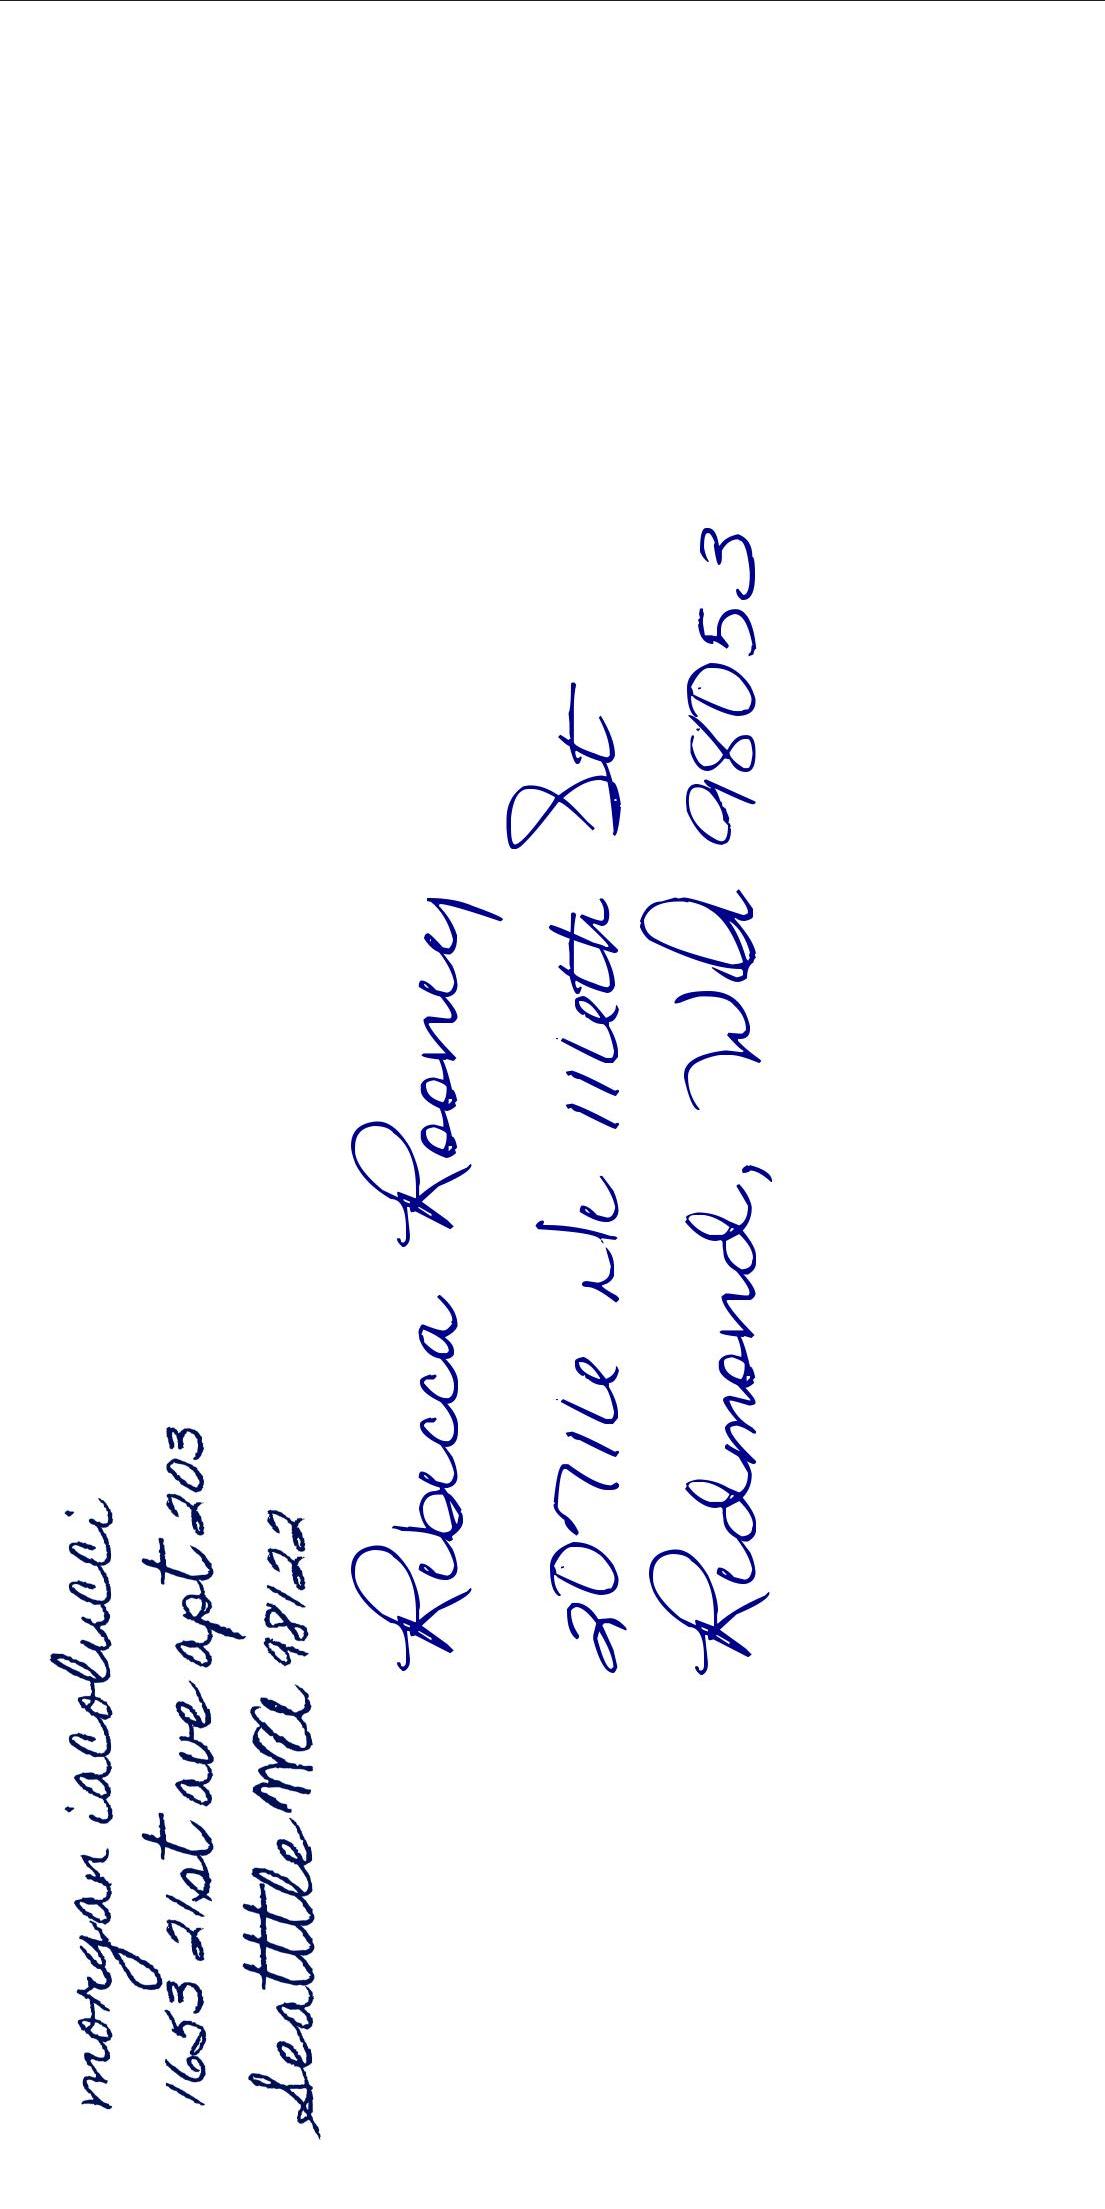 morgan iacolucci
1653 21st ave apt 203
Seattle WA 98122
Rebecca Rooney
20716 NE 116th St
Redmond, WA 98053